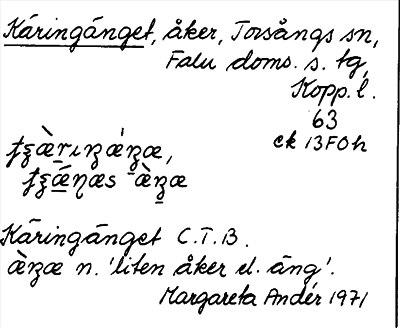 Käringänget, åker, Torsångs sn,
Falu doms. s. tg,
Kopp. l.
63
ck 13F0h
Käringänget C.T.B.
n. 'liten åker el. äng'.
Margareta Andér 1971